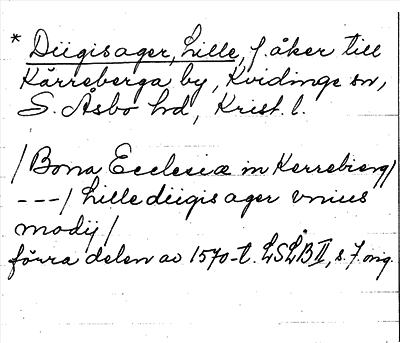 * Diigisager, Lille, f. åker till
Kärreberga by, Kvidinge sn,
S. Åsbo hd, Krist. l.
/Bona Ecclesiæ in Kerrebierg/
---/ Lille diigis ager vnius
modij/
förra delen av 1570-t. LSLB II, s. 7. orig.